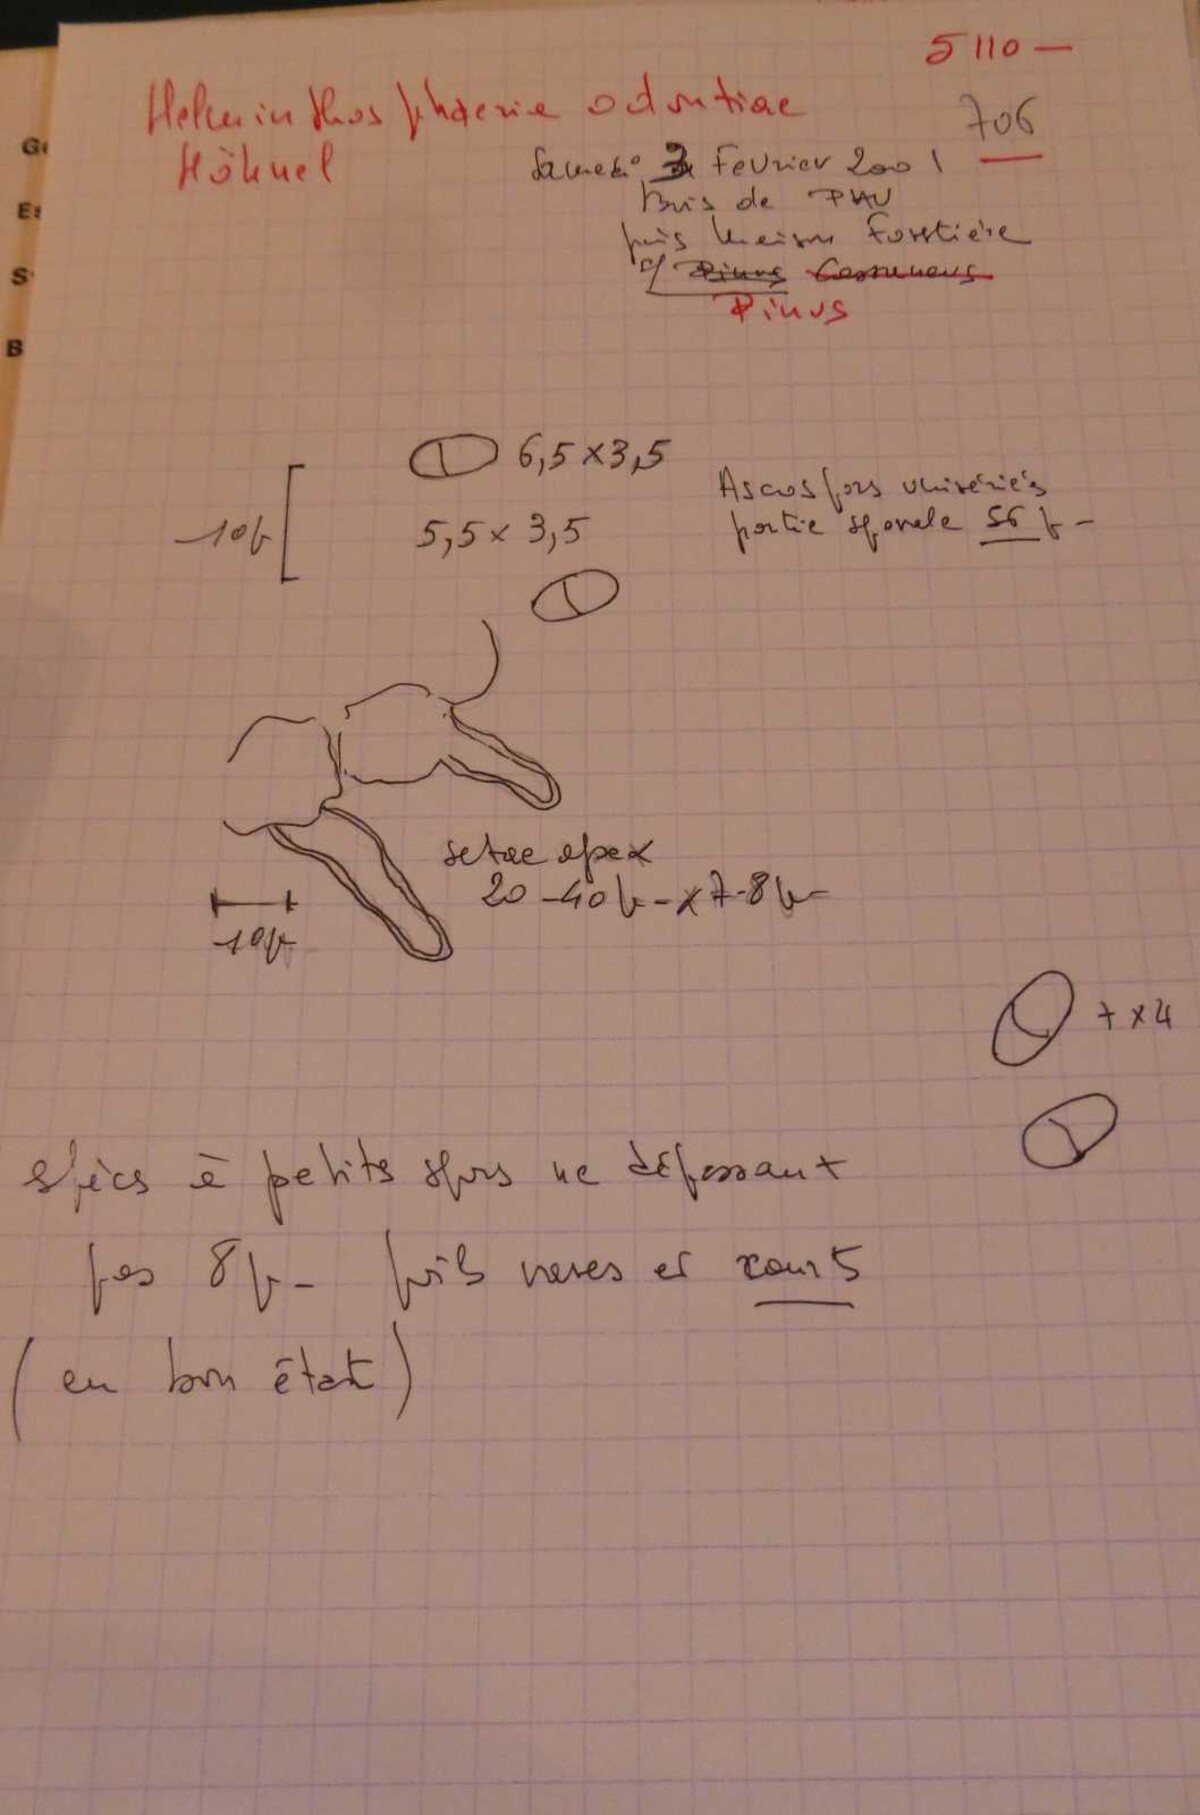 5110 —
Helminthosphaeria odontiae
706
Höhnel
Samedi 3 Février 2001
Bois de PAU
près Maison Forestière
s/ Pinus
Pinus
6,5 × 3,5
Ascospors unisériés
10µ
5,5 × 3,5
partie sporale 56 µ -
setae apex
20 - 40 µ - × 7-8 µ -
10µ
7 × 4
espèces à petits spors ne dépassant
pas 8µ - poils rares et courts
(en bon état)
G
E
S
B